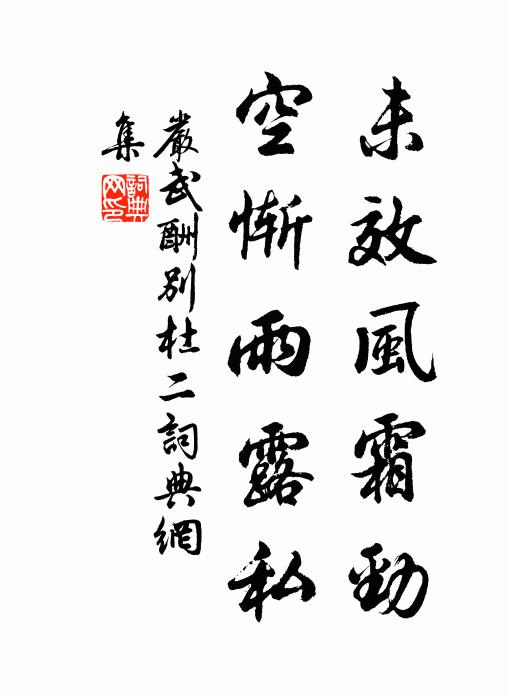 未效風霜勁
空慚雨露私
嚴武酬別杜二詞典網
集
詞典
网印